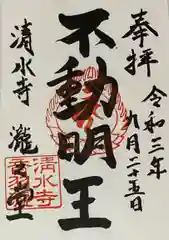 奉拝
令和三年
九月二十五日
不動明王
清水寺
瀧之堂
清水寺